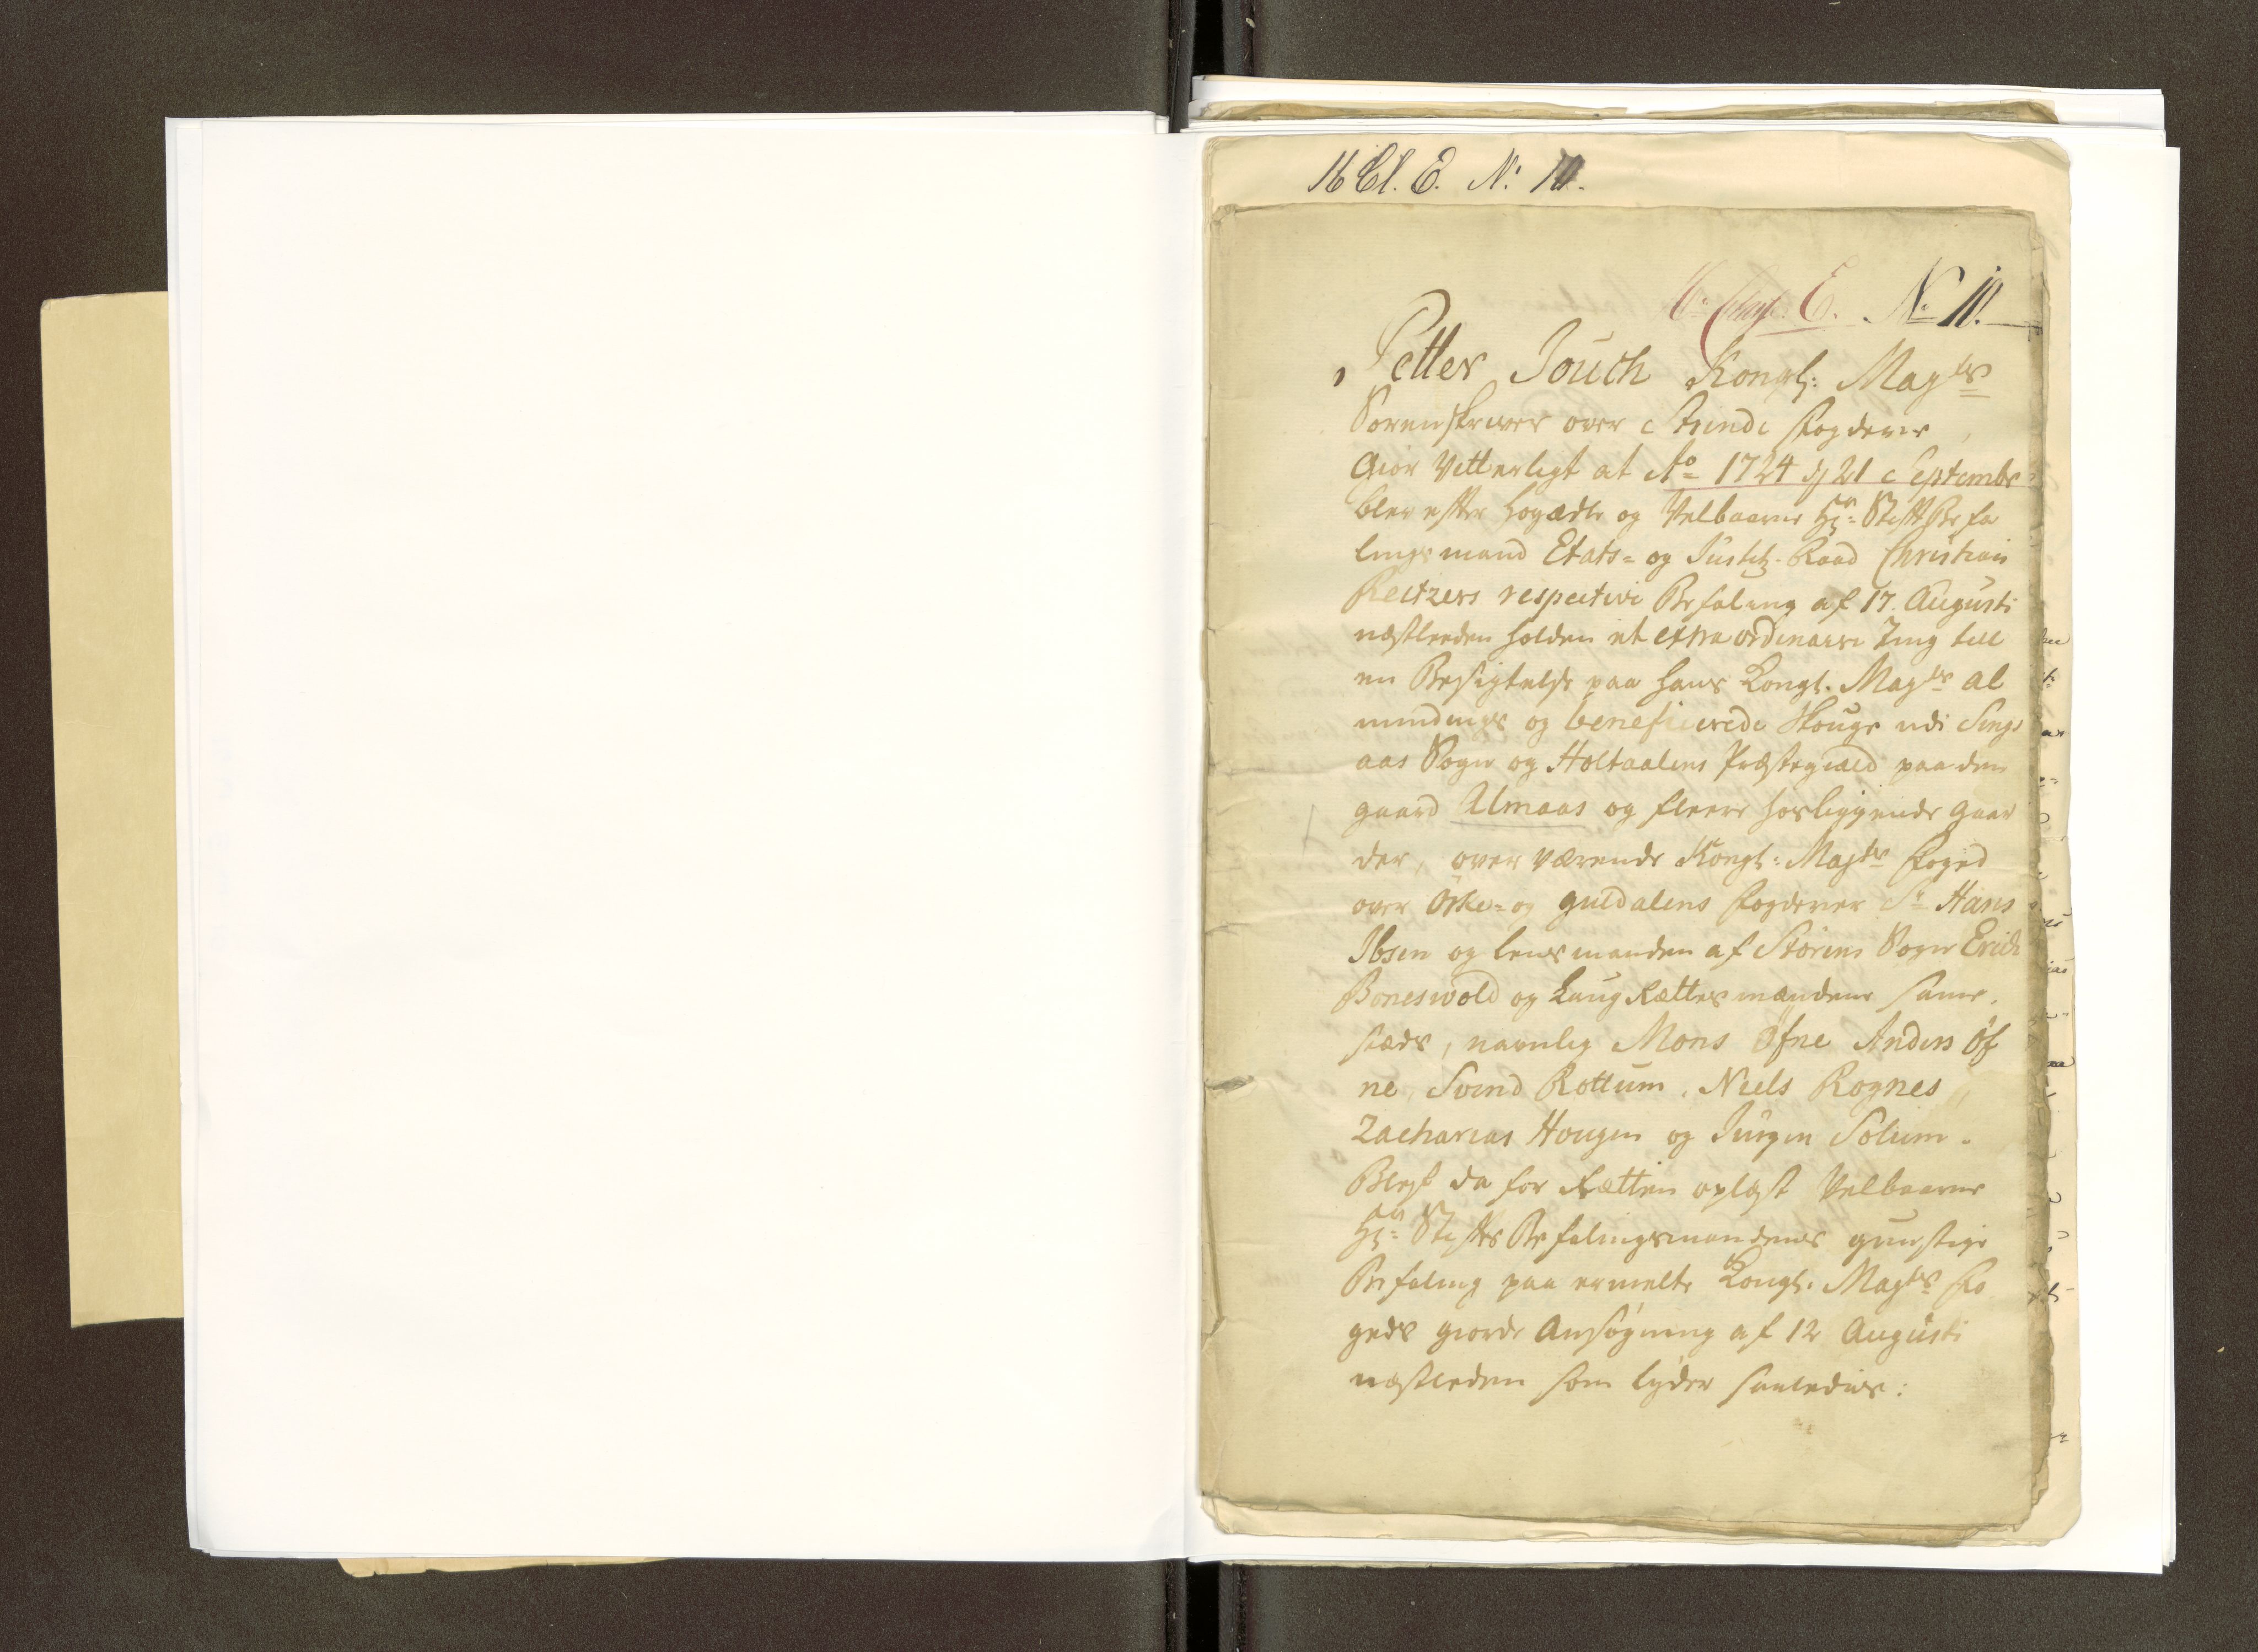 16 Cl. E. N: 10.
E. No 10.
Petter Jouch Kongl: Mayts
Sorenskriver over Strinde Fogderie
Giør Vitterligt at Ao 1724 d 21 Septembr
blev efter Høgædle og Velbaarne Hr: Stift Befa
lings mand Etats= og Justitz-Raad Christian
Reitzers respective Befaling af 17. Augusti
nestleeden holden et extra ordinaire Ting till
en Besigtelse paa Hans Kongl. Mayts Al
mindings og beneficerede Skouge udi Sings
aas Sogn og Holtaalens Præstegield paa den
gaard Almaas og fleere hosliggende gaar
der, over værende Kongl: Mayts Foged
over Orke= og Guldalens Fogderier Sr Hans
Ibsen og Lensmanden af Størens Sogn Erich
Boneswold og Laug Rættes mændene samme
stæds, navnlig Mons Øfne Anders Øf
ne, Svend Rottum, Niels Rognes,
Zacharias Hougen og Jürgen Solum.
Blef da for Rætten oplæst Velbaarne
Hr: Stifts Befalingsmandens gunstige
Befaling paa ermelte Kongl. Mayts Fo
geds giorde Ansøgning af 12 Augusti
nestleden som lyder saaledes: